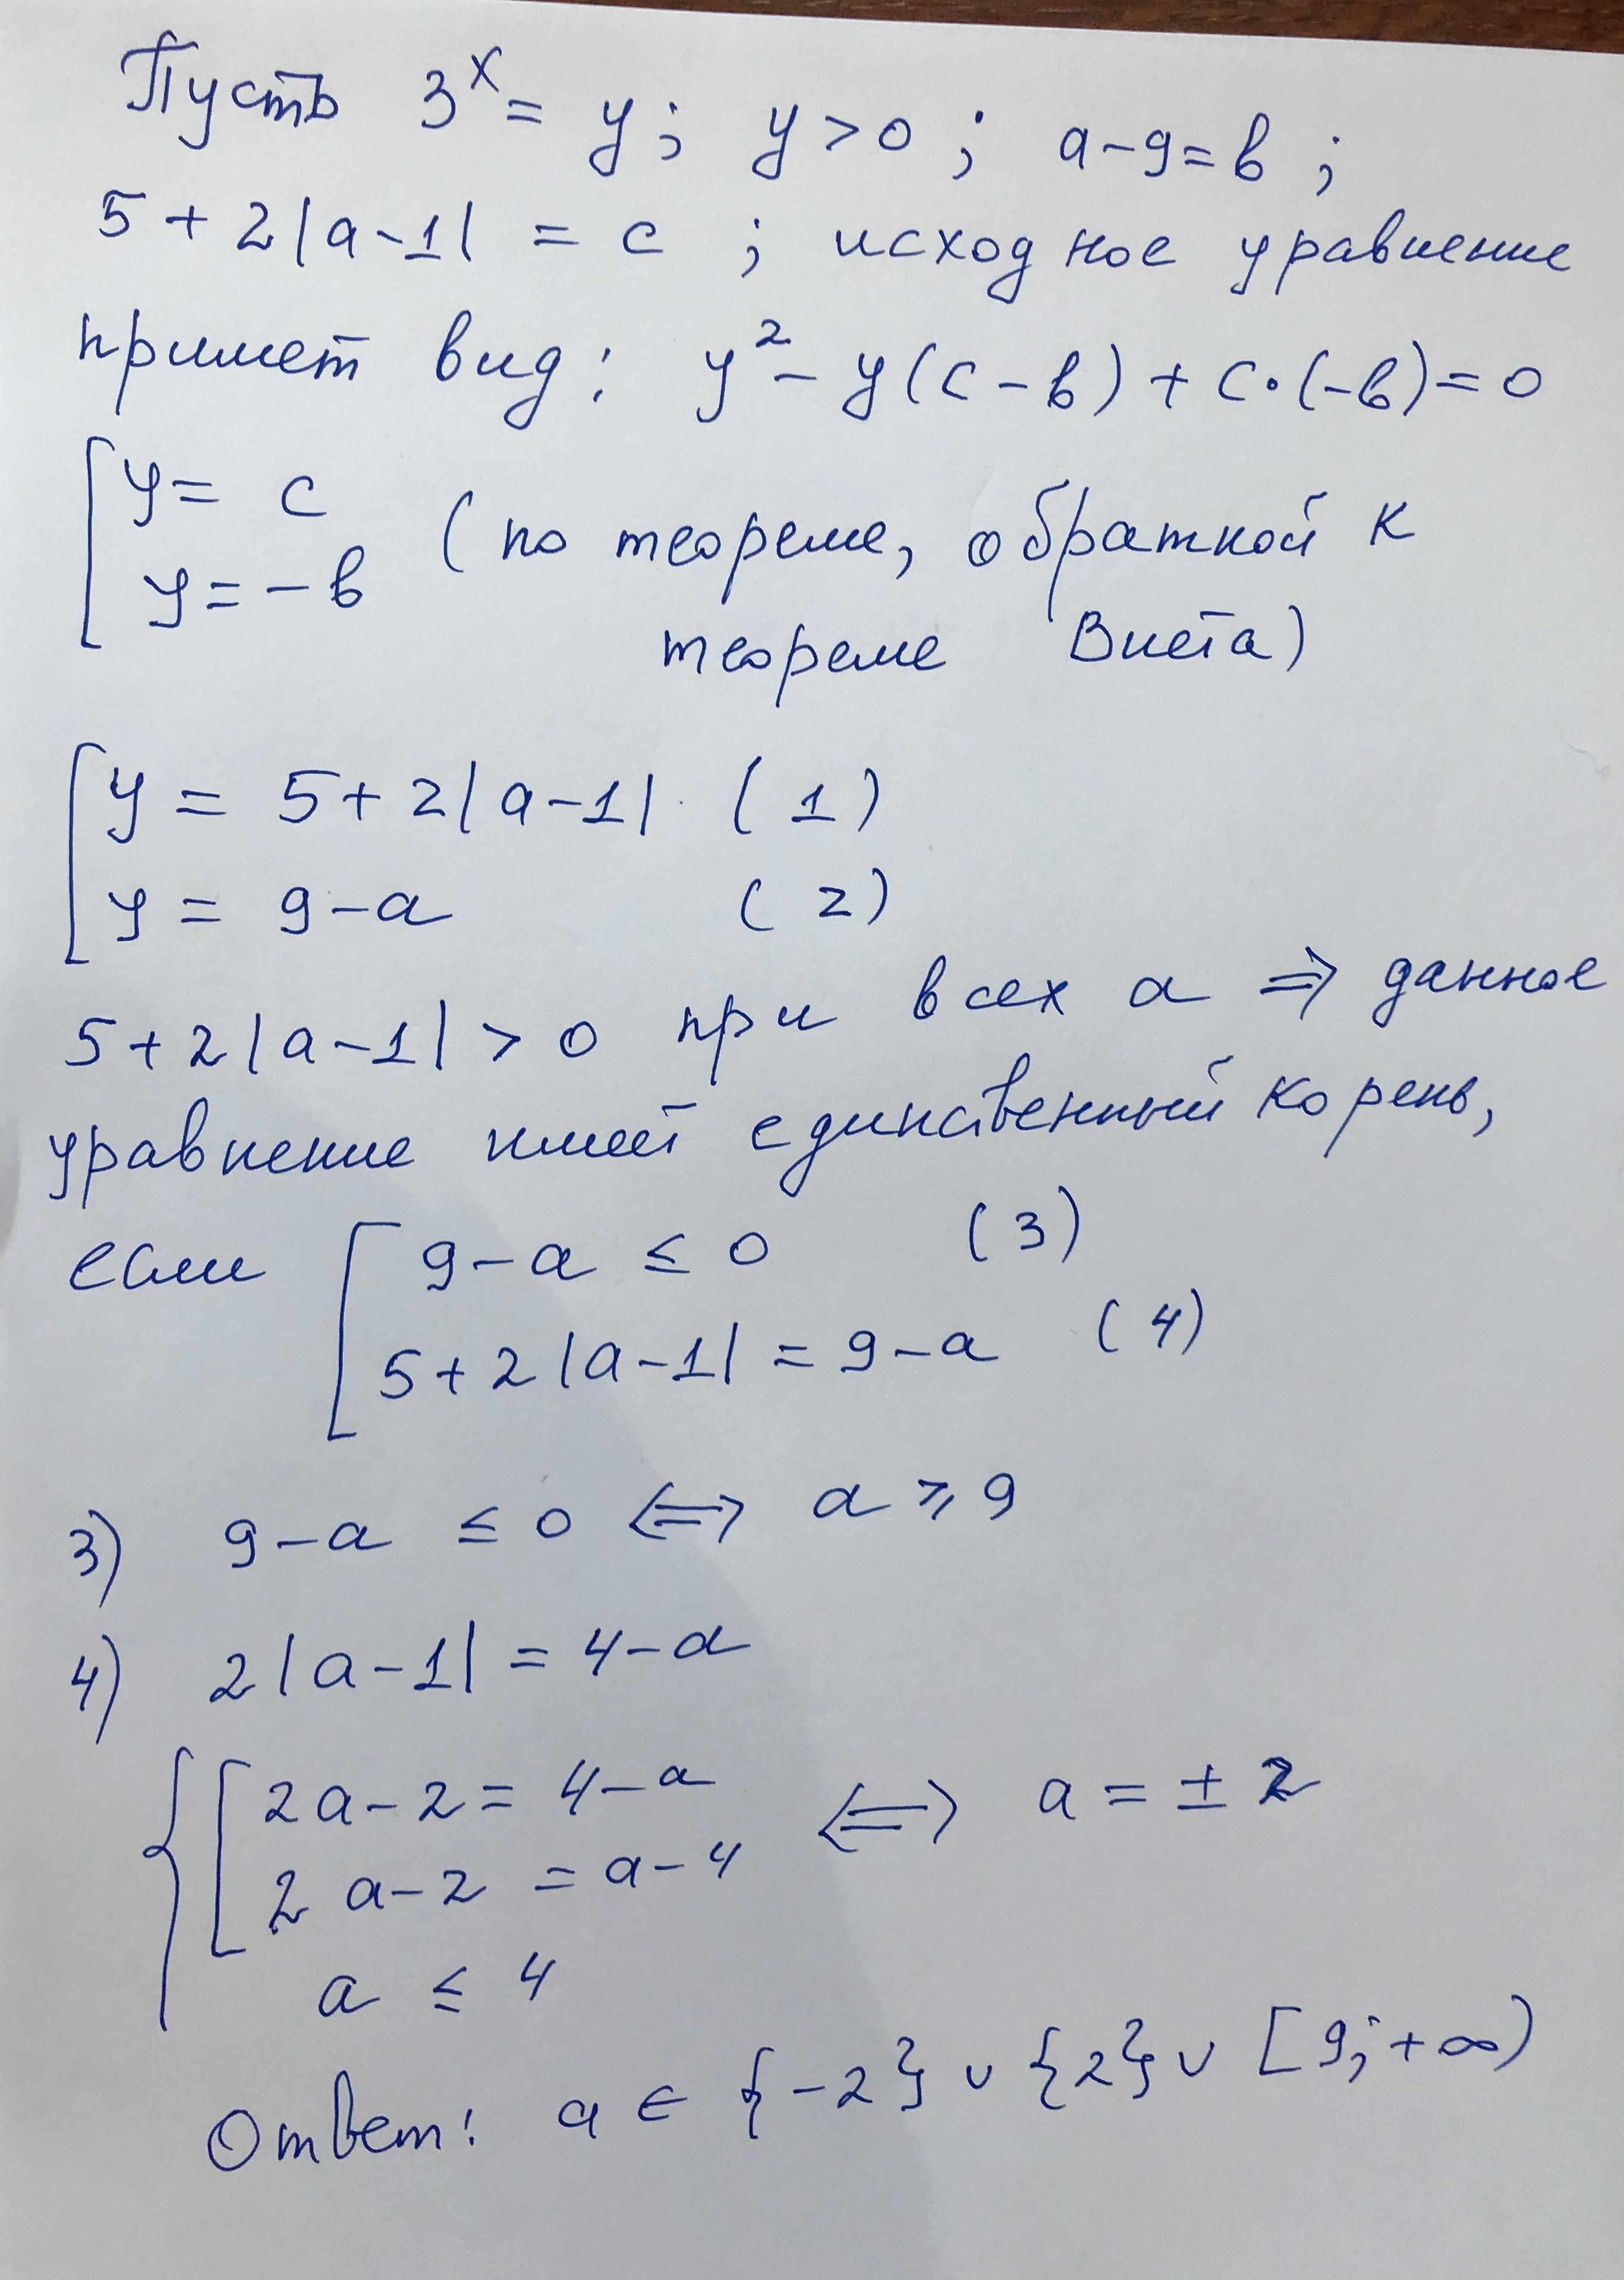 Пусть 3ˣ = y; y > 0; a-9=в;
5+2|a-1| = c; исходное уравнение
примет вид: y² - y(c-в) + c·(-в) = 0
[ y = c
y = -в (по теореме, обратной к
теореме Виета)
[ y = 5+2|a-1| (1)
y = 9-a (2)
5+2|a-1| > 0 при всех a ⇒ данное
уравнение имеет единственный корень,
если [ 9-a ≤ 0 (3)
5+2|a-1| = 9-a (4)
3) 9-a ≤ 0 ⟺ a ⩾ 9
4) 2|a-1| = 4-a
{ [ 2a-2 = 4-a ⟺ a = ±2
2a-2 = a-4
a ≤ 4
Ответ: a ∈ {-2} ∪ {2} ∪ [9; +∞)